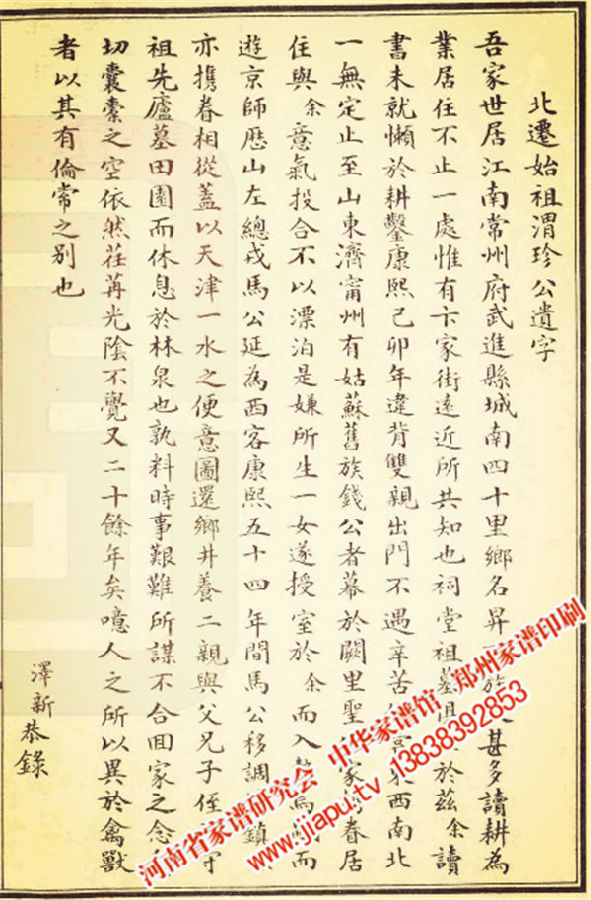 北遷始祖渭珍公遺字
吾家世居江南常州府武進縣城南四十里鄉名昇族甚多讀耕為
業居住不止一處惟有卞家街遠近所共知也祠堂祖墓俱於茲余讀
書未就懶於耕鑿康熙己卯年違背雙親出門不遇辛苦東西南北
一無定止至山東濟甯州有姑蘇舊族錢公者幕於闕里聖家眷居
住與余意氣投合不以漂泊是嫌所生一女遂授室於余而入焉而
遊京師歷山左總戎馬公延為西客康熙五十四年間馬公移調鎮
亦攜眷相從蓋以天津一水之便意圖還鄉井養二親與父兄子侄守
祖先廬墓田園而休息於林泉也孰料時事艱難所謀不合回家之念
切囊橐之空依然荏苒光陰不覺又二十餘年矣噫人之所以異於禽獸
者以其有倫常之別也
澤新恭錄
河南省家谱研究会 中华家谱馆 郑州家谱印刷
www.jiapu.tv 13838392853